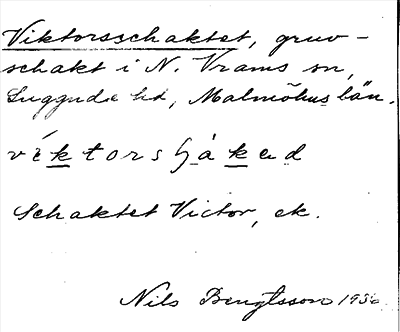 Viktorsschaktet, gruv-
schakt i N. Vrams sn,
Luggude hd, Malmöhus län.
Schaktet Victor, ek.
Nils Bengtsson 1936